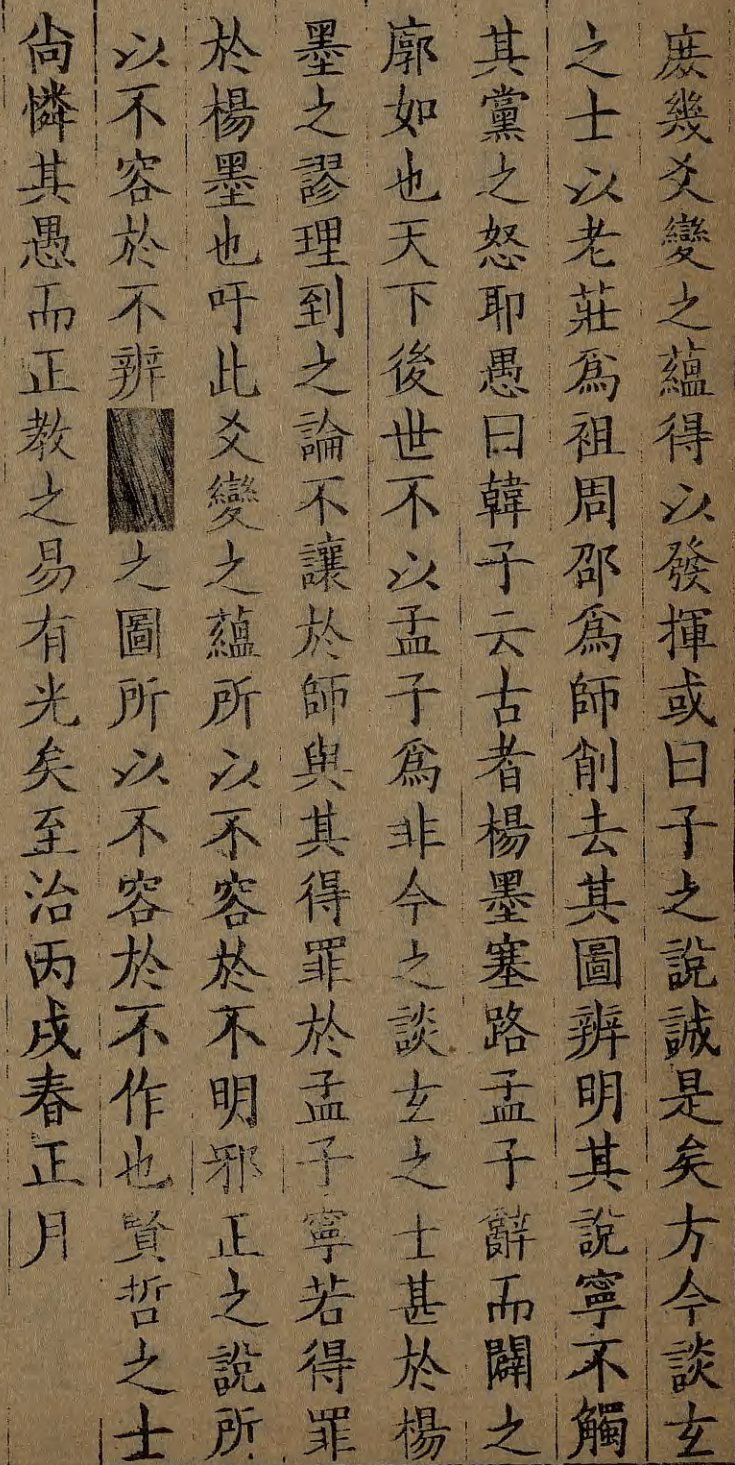 庻幾爻變之蘊得以發揮或曰子之說誠是矣方今談玄
之士以老莊爲祖周邵爲師削去其圖辨明其說寧不觸
其黨之怒耶愚曰韓子云古者楊墨塞路孟子辭而闢之
廓如也天下後世不以孟子爲非今之談玄之士甚於楊
墨之謬理到之論不讓於師與其得罪於孟子寧若得罪
於楊墨也吁此爻變之蘊所以不容於不明邪正之說所
以不容於不辨之圖所以不容於不作也賢哲之士
尙憐其愚而正教之易有光矣至治丙戌春正月